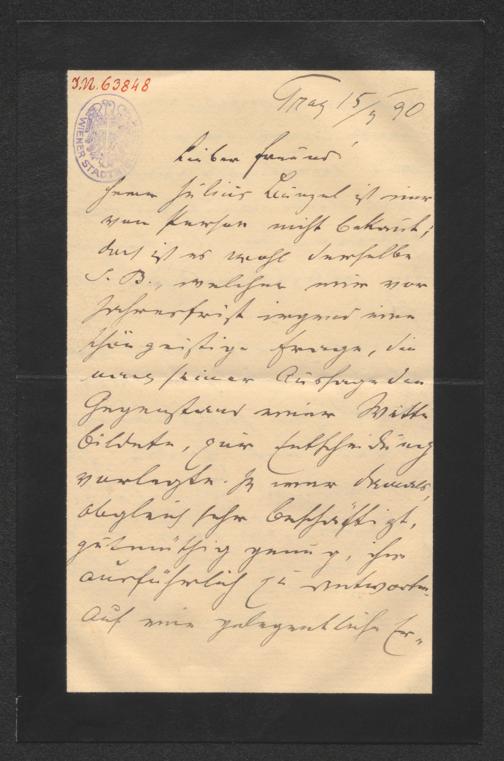 I.N. 63848
WIENER STADT
Prag 15/9 90
Lieber Freund!
Herr Julius Kunzel ist mir
von Person nicht bekannt;
doch ist es wohl derselbe
J. B., welcher mir vor
Jahresfrist irgend eine
schöngeistige Frage, die
nach seiner Aussage den
Gegenstand einer Wette
bildete, zur Entscheidung
vorlegte. Ich war damals,
obgleich sehr beschäftigt,
gutmüthig genug, ihm
ausführlich zu antworten.
Auf eine gelegentliche Er-